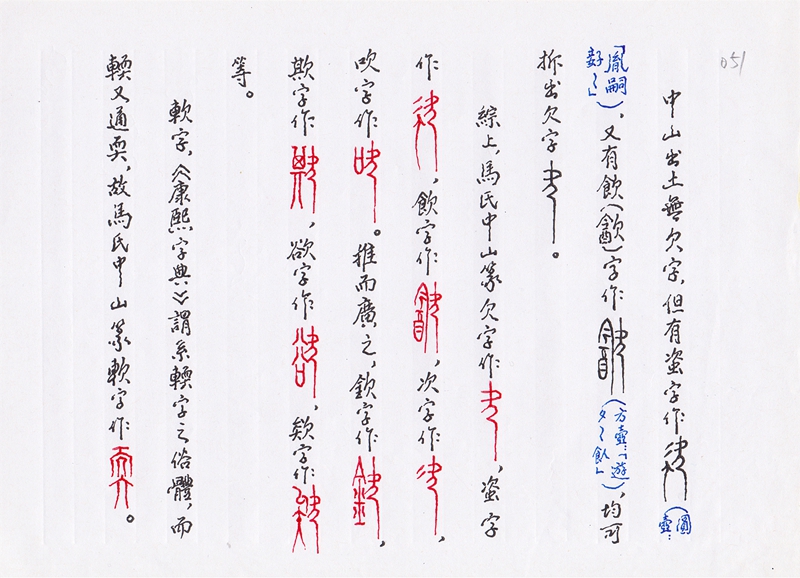 051
中山出土無欠字,但有盜字作(圓壺:
「胤嗣〻」),又有飲(㱃)字作(方壺:「遊夕〻飲」),均可
拆出欠字。
綜上,馬氏中山篆欠字作,盜字
作,飲字作,次字作,
吹字作。推而廣之,欽字作,
欺字作,欲字作,欵字作
等。
軟字,《康熙字典》謂系輭字之俗體,而
輭又通耎,故馬氏中山篆軟字作。